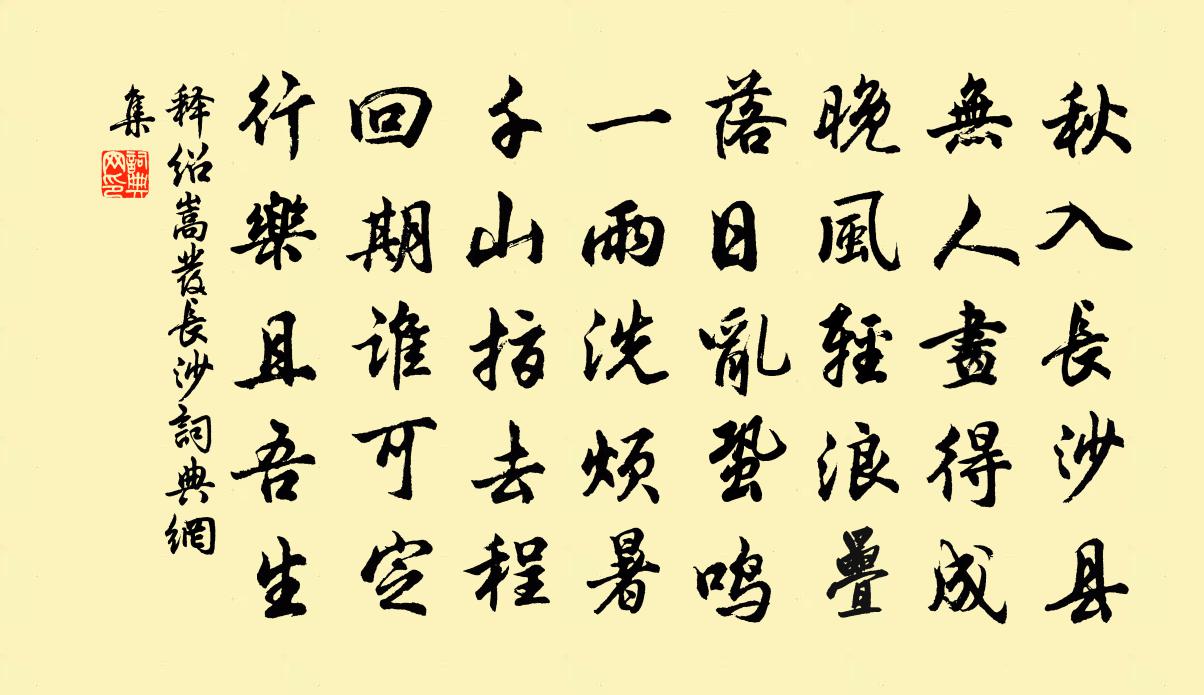 秋入長沙县
無人畫得成
晚風輕浪疊
落日亂蛩鳴
一雨洗煩暑
千山指去程
回期谁可定
行樂且吾生
释绍嵩發長沙詞典網
集
詞典网印